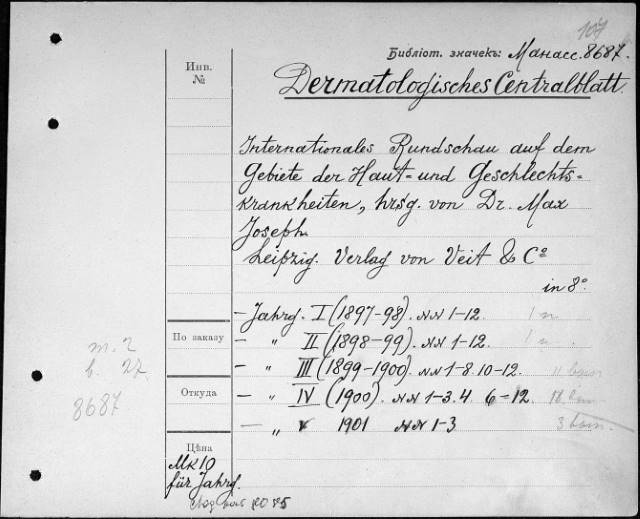 107
Библіот. значекъ: Манасс. 8687.
Инв.
№
Dermatologisches Centralblatt.
Internationales Rundschau auf dem
Gebiete der Haut- und Geschlechts-
krankheiten, hrsg. von Dr. Max
Joseph.
Leipzig. Verlag von Veit & Co
in 8°.
- Jahrg. I (1897-98). NN 1-12. 1 п
По заказу
- " II (1898-99). NN 1-12. 1 п
- " III (1899-1900). NN 1-8. 10-12. 11
Откуда
- " IV (1900). NN 1-3. 4. 6-12.
- " V 1901 NN 1-3 3
т. 2
б. 27.
8687
Цѣна
Mk 10
für Jahrg.